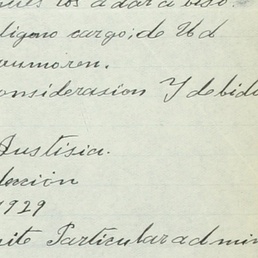 los adara biso.
digno cargo; de Ud
onsiderasion Y debido
Justisia.
lección
1929
ite Particular admin